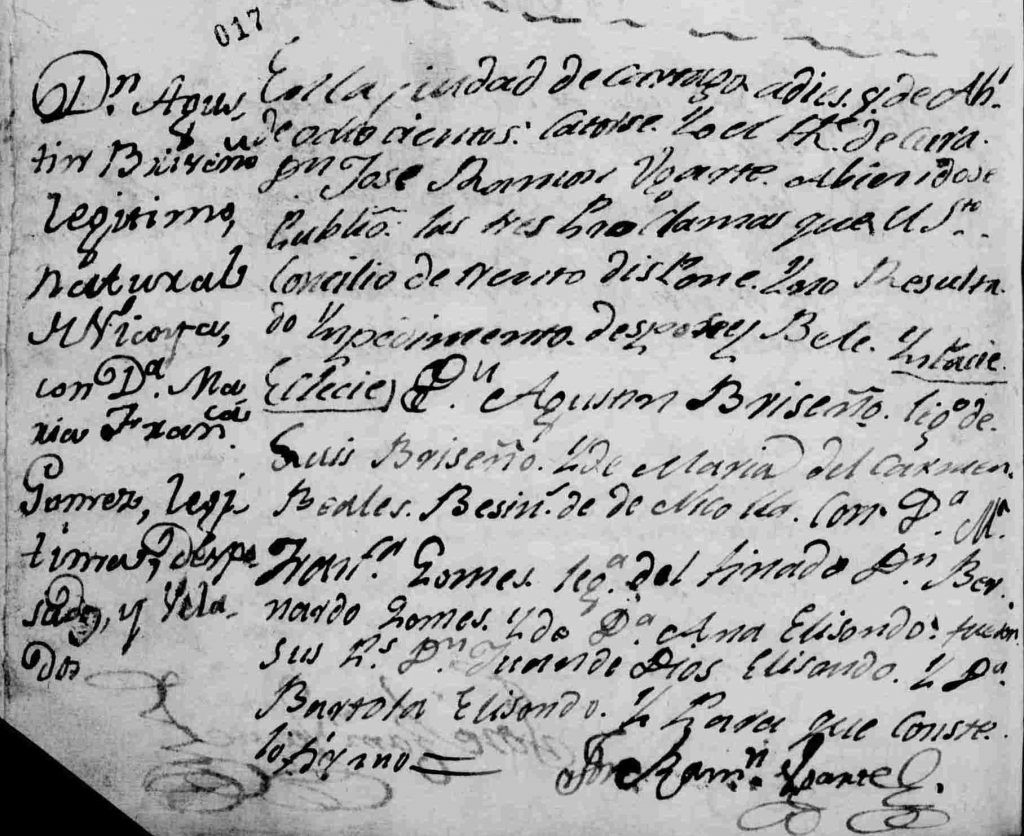 017
Dn. Agus
tin Briseño
legitimo,
natural
d Nicoya,
con Da. Ma
ria Franca.
Gomez, legi
tima, despo
sados, y Vela
dos
En la ciudad de Cartago a dies. y. de Abl.
de ocho cientos: Catorse. Yo el Te. de Cura.
Dn Jose Ramon Ugarte. Abiendose
Publio. las tres Proclamas que el Sto.
Concilio de trento dispone. Y no Resulta.
do Ynpedimento. despose y Bele. Ynfacie.
Eclecie) Dn. Agustin Briseño. ligo. de.
Luis Briseño. Y de Maria del Carmen.
Beales. Besin. de de Nicolla. Con Da. Ma
Franca. Gomes. lega. del finado Dn Ber.
nardo Gomes. Y de Da. Ana Elisondo: fueron
sus Ps. Dn. Juan de Dios Elisondo. Y Da.
Bartola Elisondo. Y Para que Conste.
lo firmo =
Jose Ramn. Ugarte